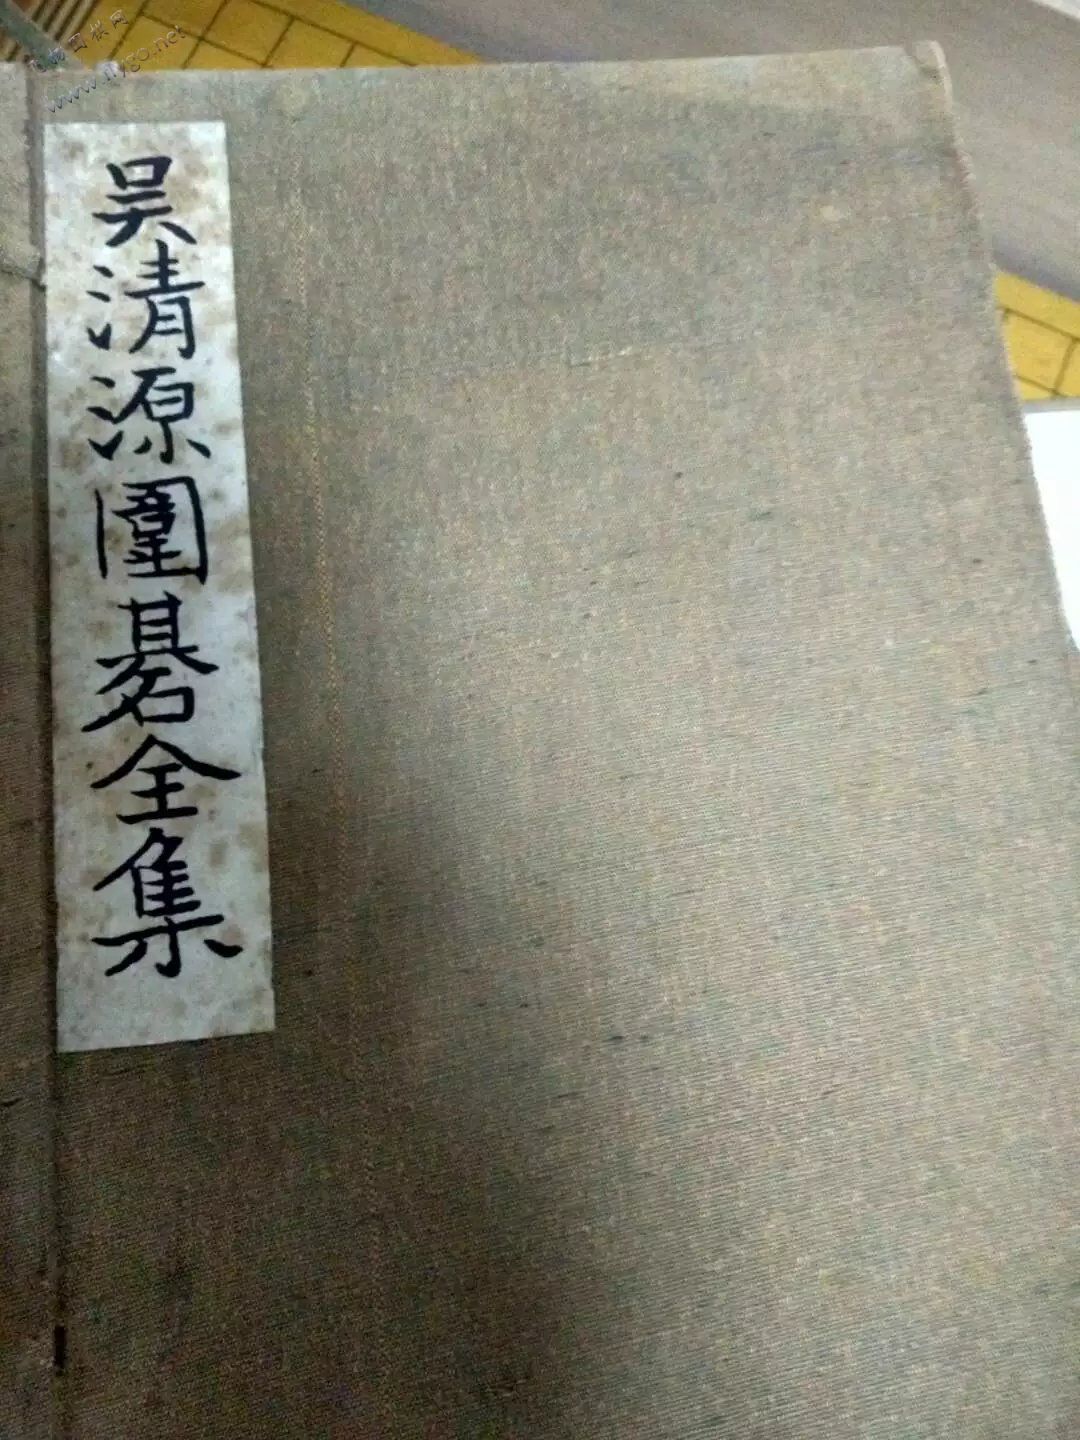 www.flygo.net
吴清源圍碁全集